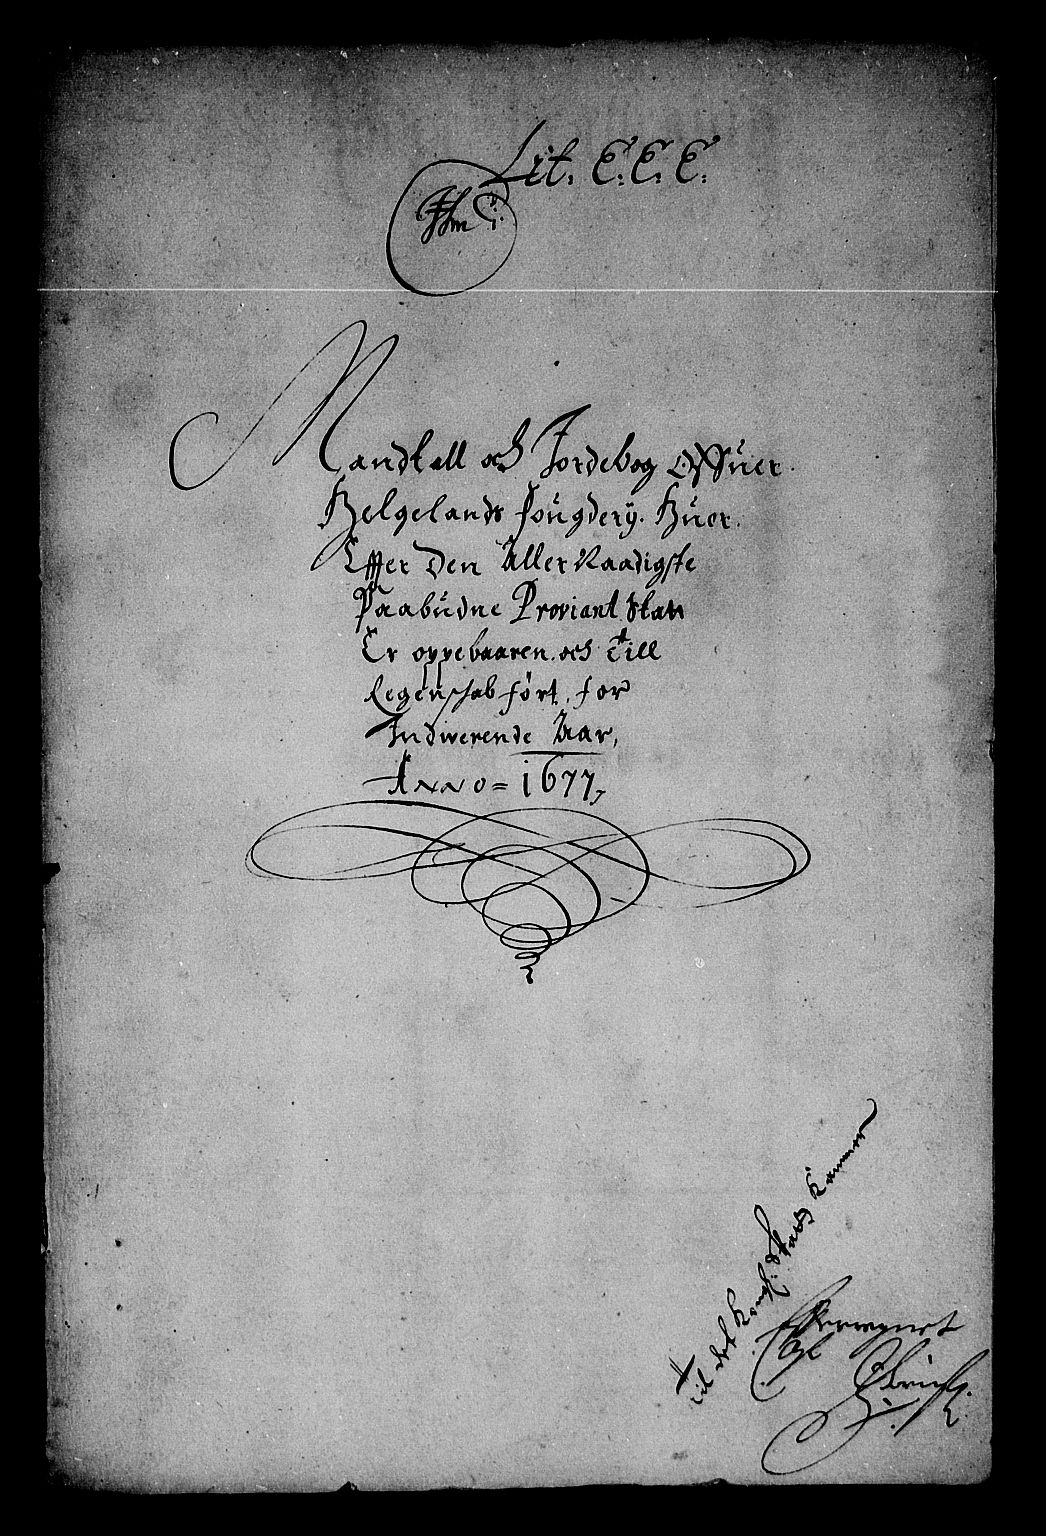 Lit. E. E. E.
Mandtall och Jordebog Offuer
Helgelands fougderÿ. Huor
Effter Den Aller Naadigste
Paabudne Proviant Skatt
Er oppebaaren och Till
Regenschab ført, for
Indwerende Aar,
Anno = 1677,
til det Kongl: Skatt Kammer